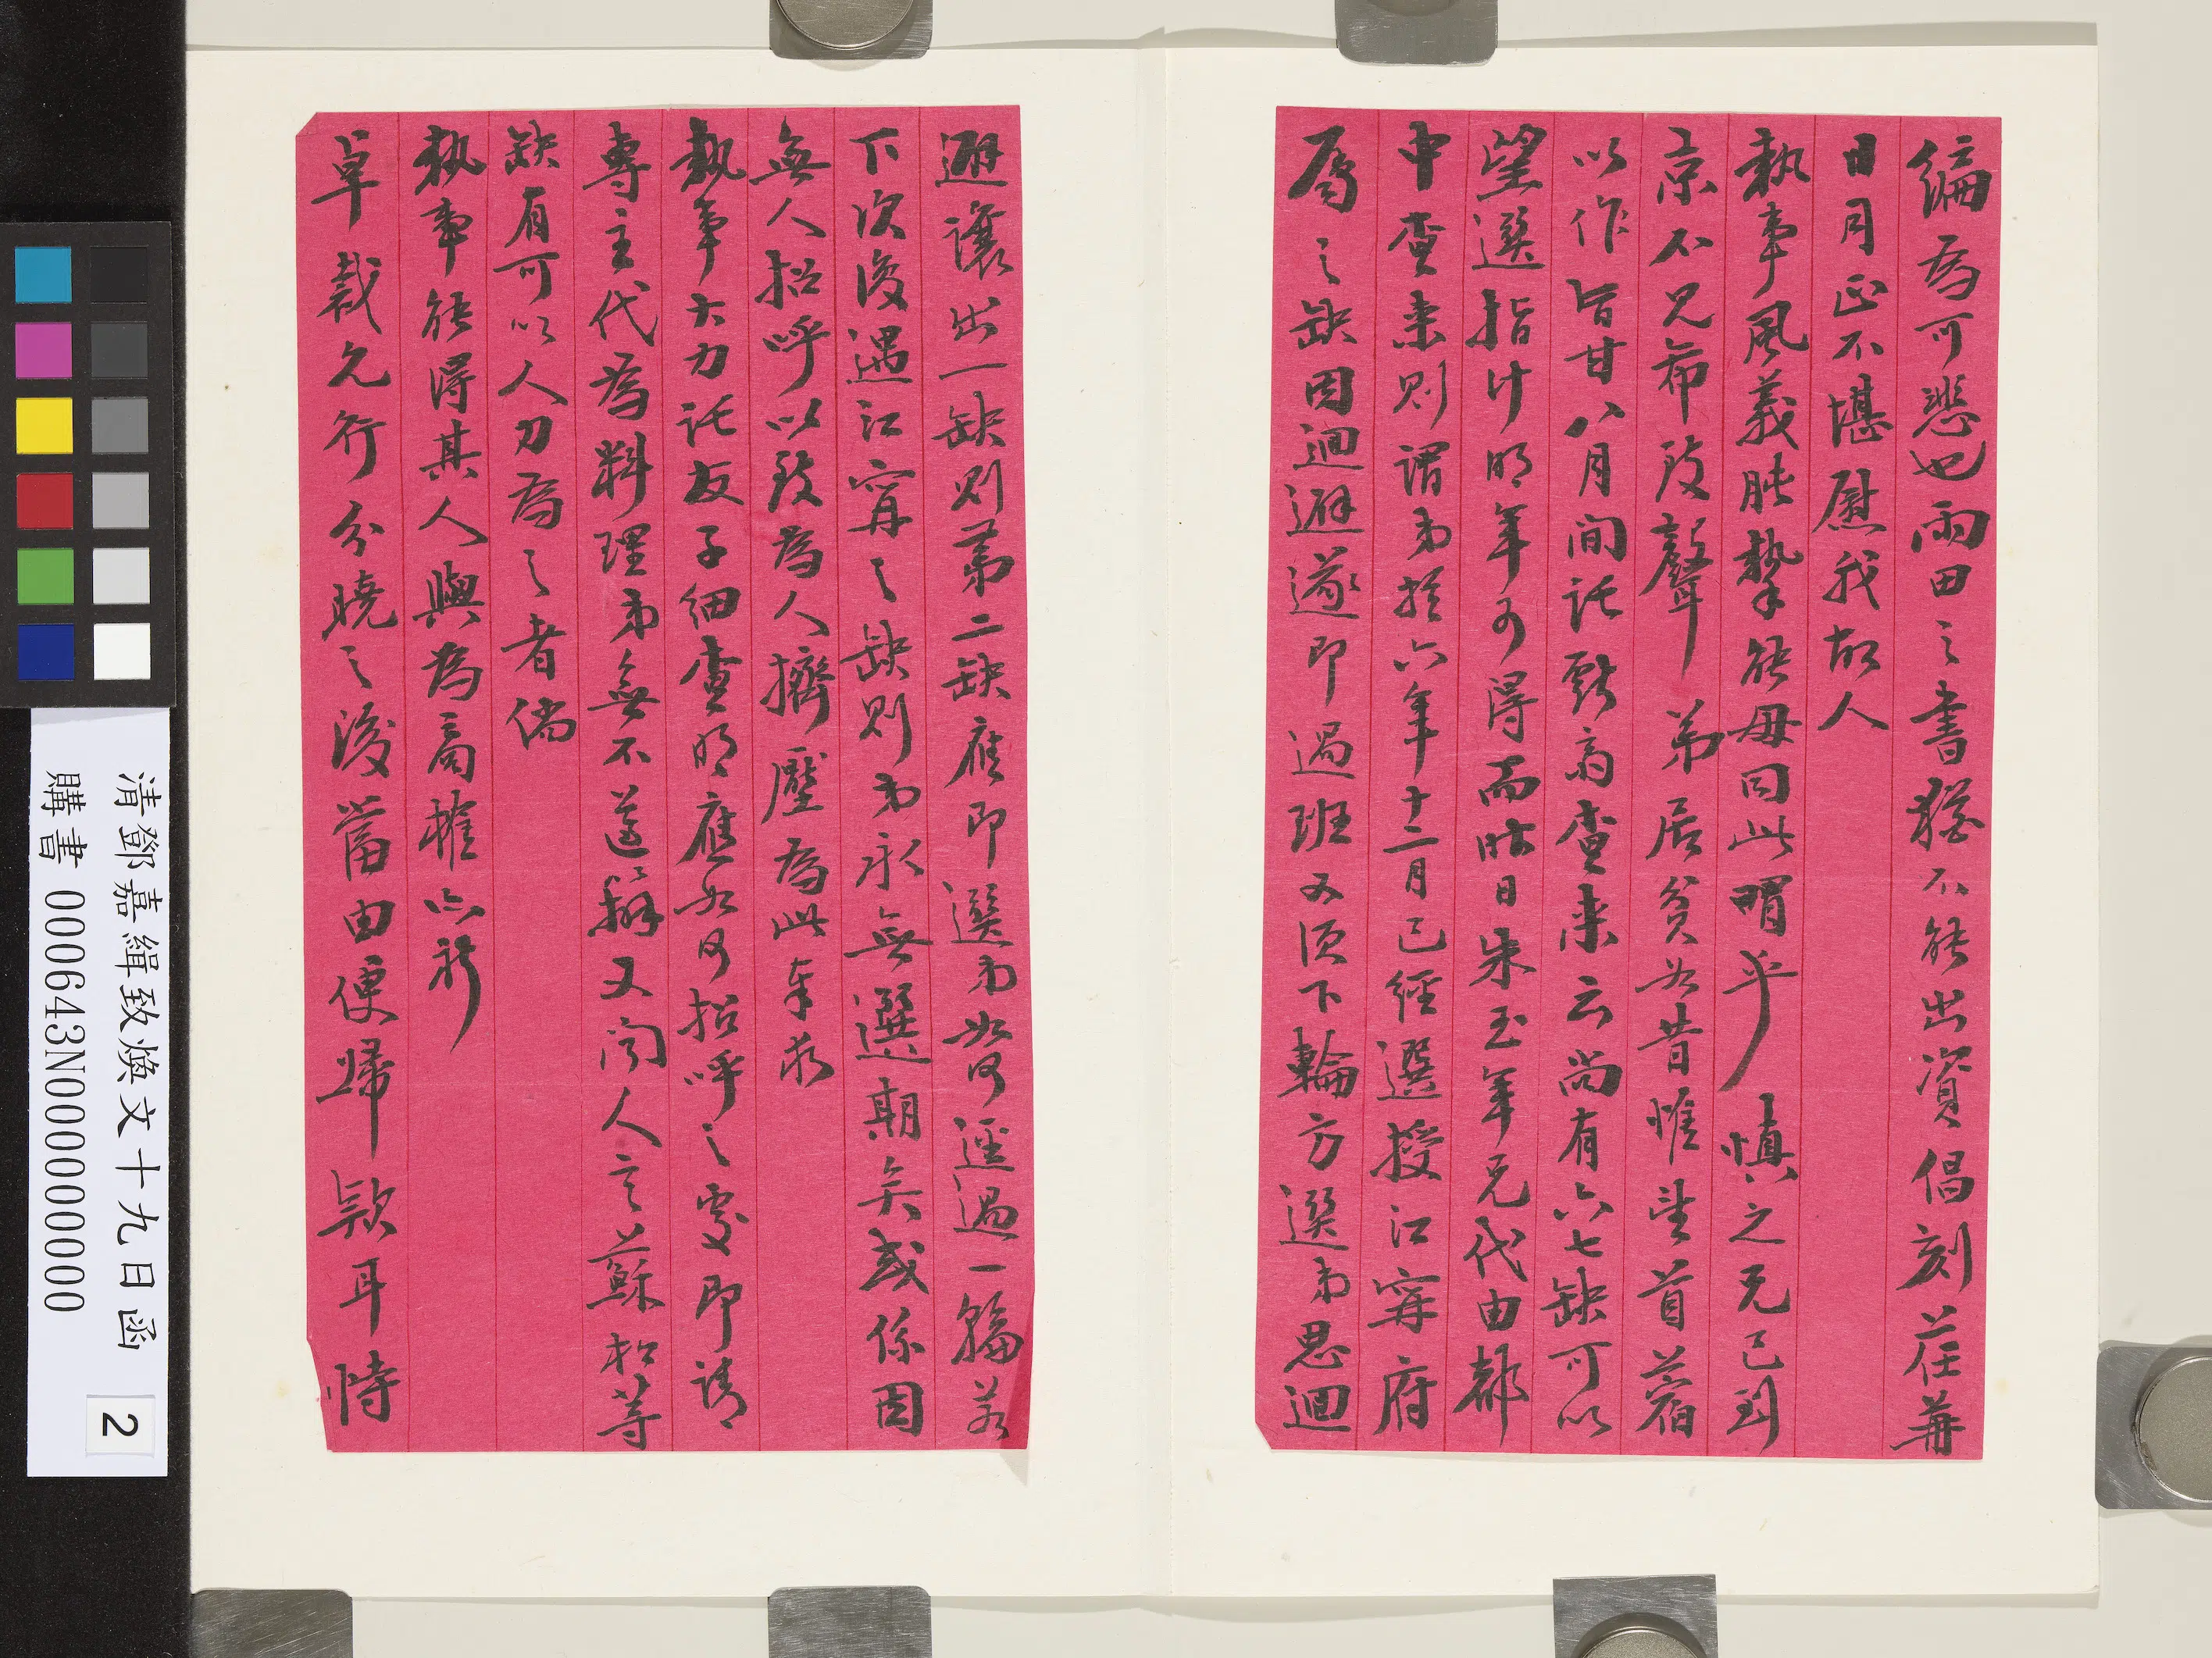 編為可悲也雨田之書猶不能出資倡刻荏苒
日月正不堪慰我故人
執事風義肫摯能毋同此喟乎慎之兄已到
京不見希致聲弟居貧如昔惟望首蓿
以作旨甘八月間託戟高查来云尚有六七缺可以
望選指计明年可得而昨日朱玉年兄代由部
中查来則謂弟於六年十二月已經選授江寧府
属之缺因迴避遂即過班又須下輪方選弟思迴
避讓出一缺則第二缺應即選弟如何逕過一輪若
下次復遇江甯之缺則弟永無選期矣或係因
無人招呼以致為人擠壓為此奉求
執事大力託友子細查明應如何招呼之處即請
專主代為料理弟無不遵辦又聞人言蘇松等
缺有可以人力為之者倘
執事能得其人與為商榷亦祈
卓裁先行分曉之後當由便歸款耳恃
清鄧嘉緝致煥文十九日函
購書 000643N000000000
2